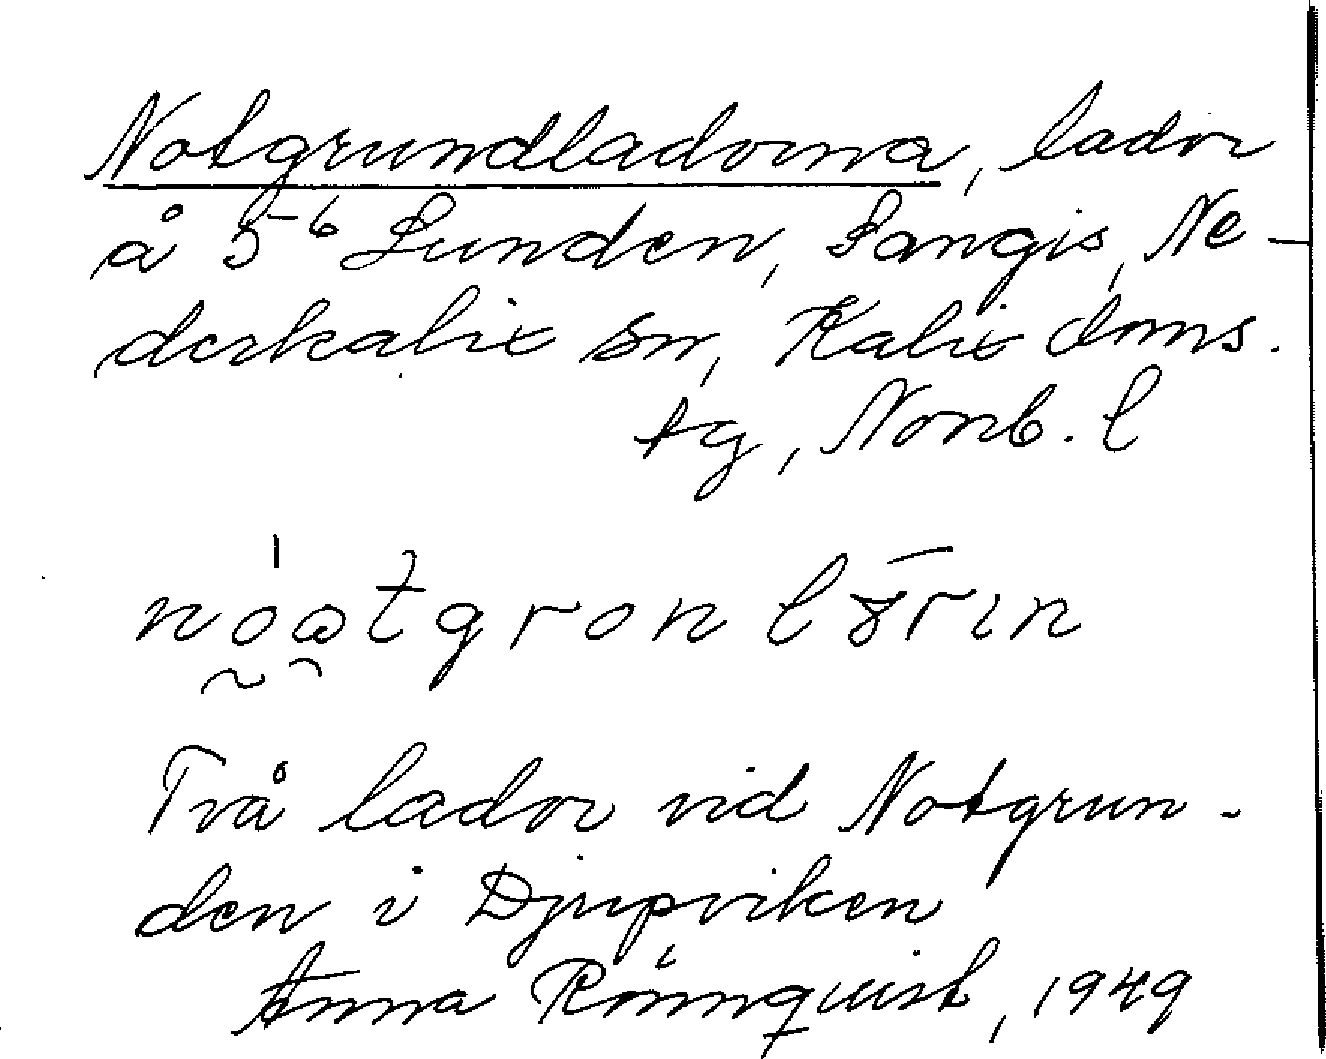 Notgrundladorna, lador
å 5-6 Lunden, Sangis, Ne-
derkalix sn, Kalix doms.
tg, Norrb. l
Två lador vid Notgrun-
den i Djupviken
Anna Rönnquist, 1949